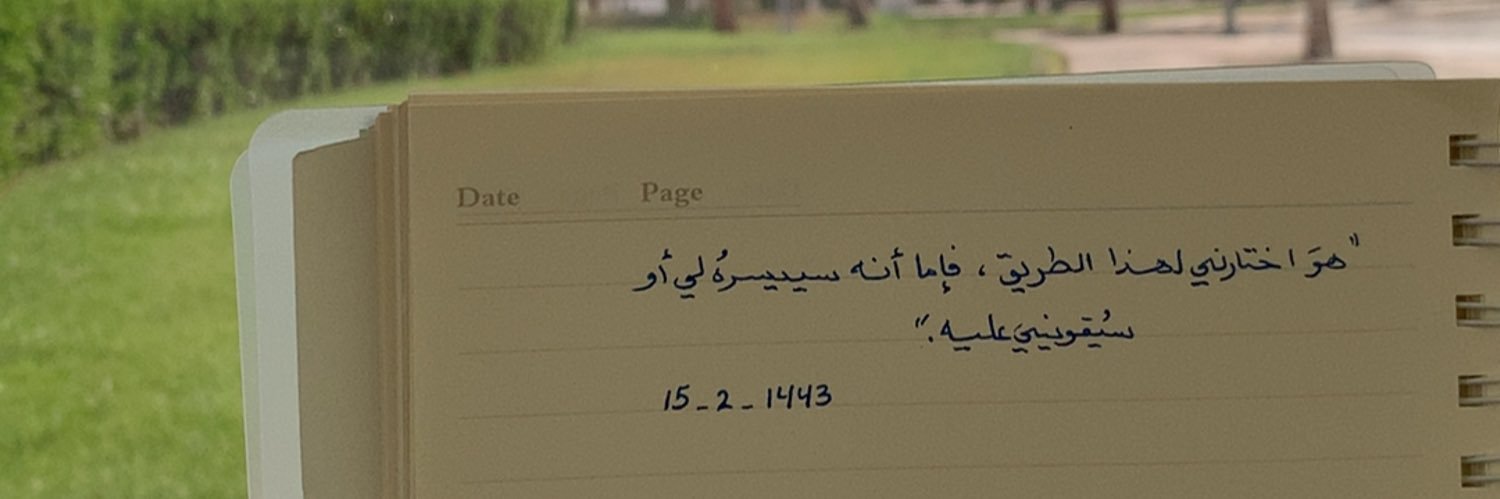 Date Page
"هوَ اختارني لهذا الطريق، فإما أنه سييسرهُ لي أو
سيُقويني عليه."
15-2-1443